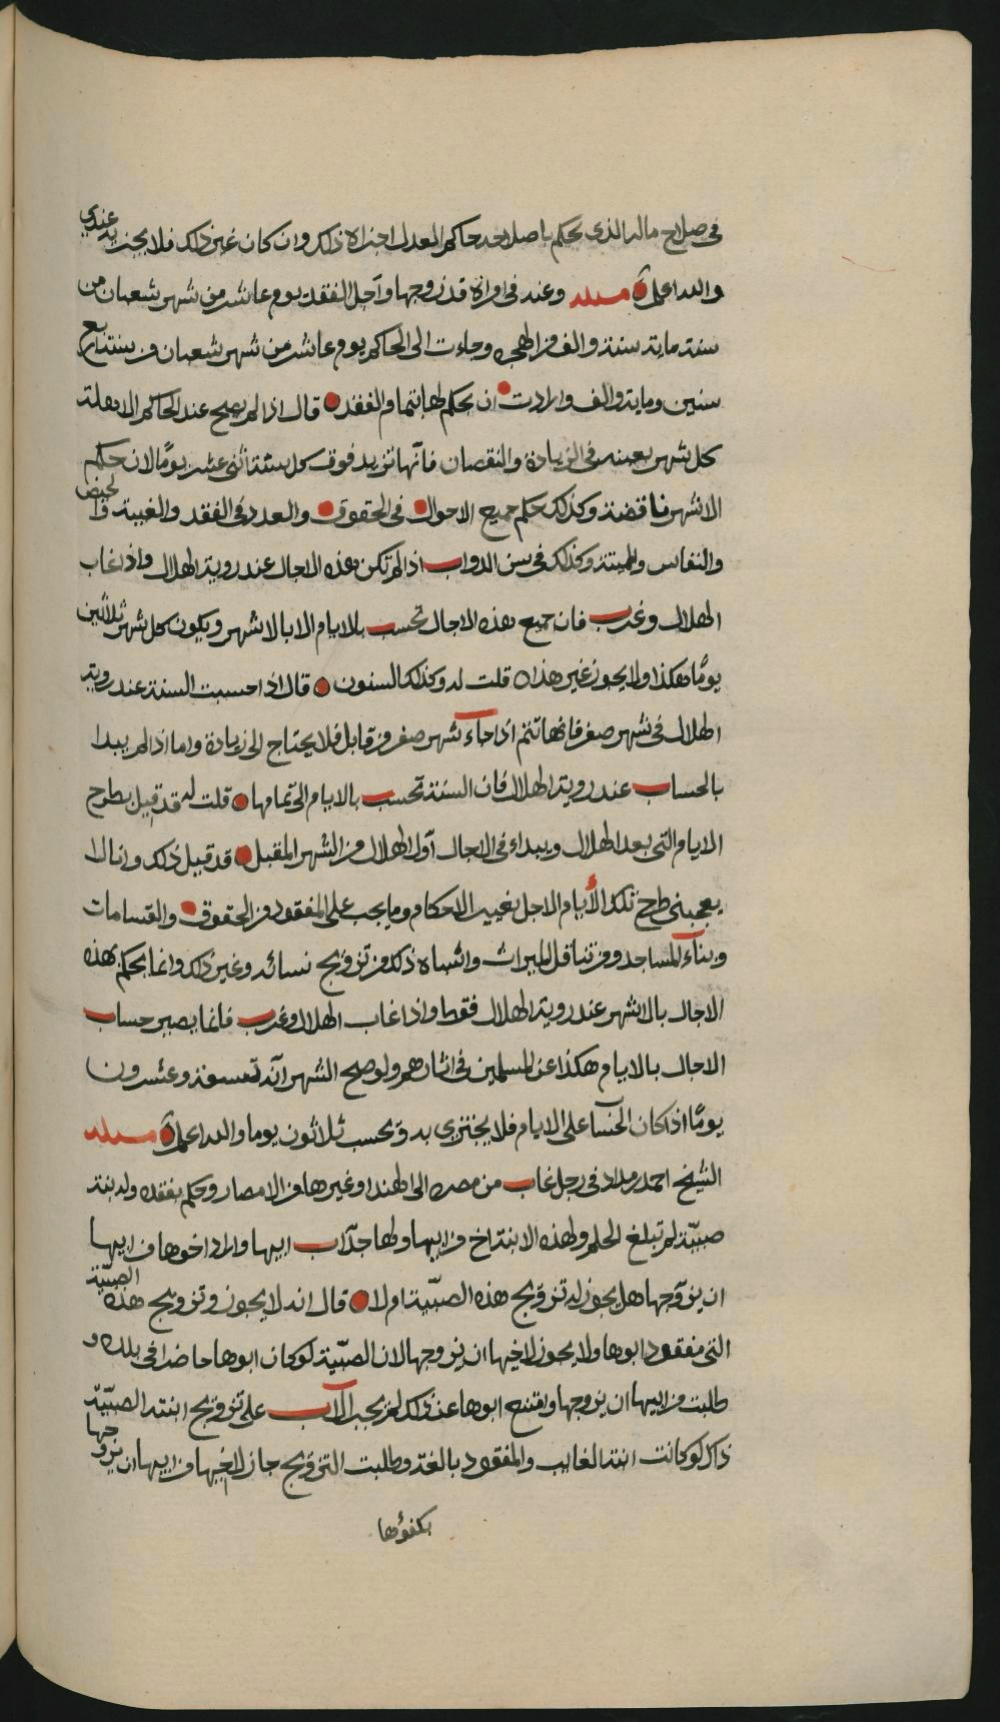 في صلاح ماله الذي يحكم باصلاحه حاكم العدل اجزاه ذلك وان كان غير ذلك فلا يجزيه عندي
والله اعلم مسئلة وعنه في امراة فقد زوجها وآجل الفقد يوم عاشر من شهر شعبان من
سنة ماية سنة والف من الهجره وجاءت الى الحاكم يوم عاشر من شهر شعبان من سنة اربع
سنين وماية والف وارادت ان يحكم لها بتمام الفقد قال اذا لم يصح عند الحاكم الاهلة
كل شهر بعينه في الزيادة والنقصان فانها تزيد فوق كل سنة اثنى عشر يومًا لان حكم
الاشهر ناقصة وكذلك حكم جميع الاحوال في الحقوق والعدد في الفقد والغيبة والحيض
والنفاس والميتة وكذلك في سن الدواب اذا لم تكن هذه الاجال عند روية الهلال واذا غاب
الهلال وغرب فان جميع هذه الاجال تحسب بالايام الا بالاشهر ويكون كل شهر ثلاثين
يومًا هكذا ولا يجوز غير هذا قلت له وكذلك السنون قال اذا حسبت السنة عند روية
الهلال في شهر صفر فانها تتم اذا جاء شهر صفر من قابل فلا يحتاج الى زيادة واما اذا لم يبدا
بالحساب عند روية الهلال فان السنة تحسب بالايام الى تمامها قلت له قد قيل يطرح
الايام التي بعد الهلال ويبداء في الاجال آول الهلال من الشهر المقبل قد قيل ذلك وانا لا
يعجبني طرح تلك الأيام لاجل تغيير الاحكام وما يجب على المفقود من الحقوق والقسامات
وبناء المساجد ومن تناقل الميراث واشباه ذلك من تزويج نسائه وغير ذلك وانما يحكم بهذه
الاجال بالاشهر عند روية الهلال فقط واذا غاب الهلال وغرب فانما يصير حساب
الاجال بالايام هكذا عن المسلمين في اثارهم ولو صح الشهر آنه تسعة وعشرون
يومًا اذا كان الحسا على الايام فلا يجتزي به ويحسب ثلاثون يوما والله اعلم مسئلة
الشيخ احمد بن مداد في رجل غاب من مصره الى الهند او غيرها من الامصار وحكم بفقده وله بنة
صبيّة لم تبلغ الحلم ولهذه الابنة اخ من ابيها ولها جدّ اب ابيها واراد اخوها من ابيها
ان يزوّجها هل يجوز له تزويج هذه الصبيّة ام لا قال انه لا يجوز تزويج هذه الصبيّة
التي مفقود ابوها ولا يجوز لاخيها ان يزوجها لان الصبّية لو كان ابوها حاضرا في بلده و
طلبت من ابيها ان يزوجها وامتنع ابوها عن ذلك لم يجب الآب على تزويج ابنته الصبيّة
ذلك لو كانت ابنة الغايب والمفقود بالغة وطلبت التزويج جاز لاخيها من ابيها ان يزوجها
بكفوءها